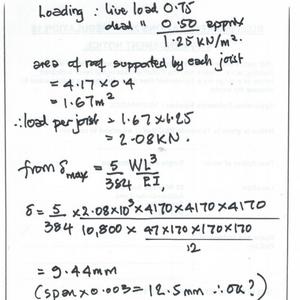 Loading : live load 0.75
dead " 0.50 approx
1.25 KN/m².
area of roof supported by each joist
= 4.17 x 0.4
= 1.67m²
∴ load per joist = 1.67 x 1.25
= 2.08KN.
from δmax = 5/384 WL³/EI,
δ = 5/384 x 2.08x10³x4170x4170x4170 / 10,800 x 47x170x170x170/12
= 9.44mm
(span x 0.003 = 12.5mm ∴ ok?)